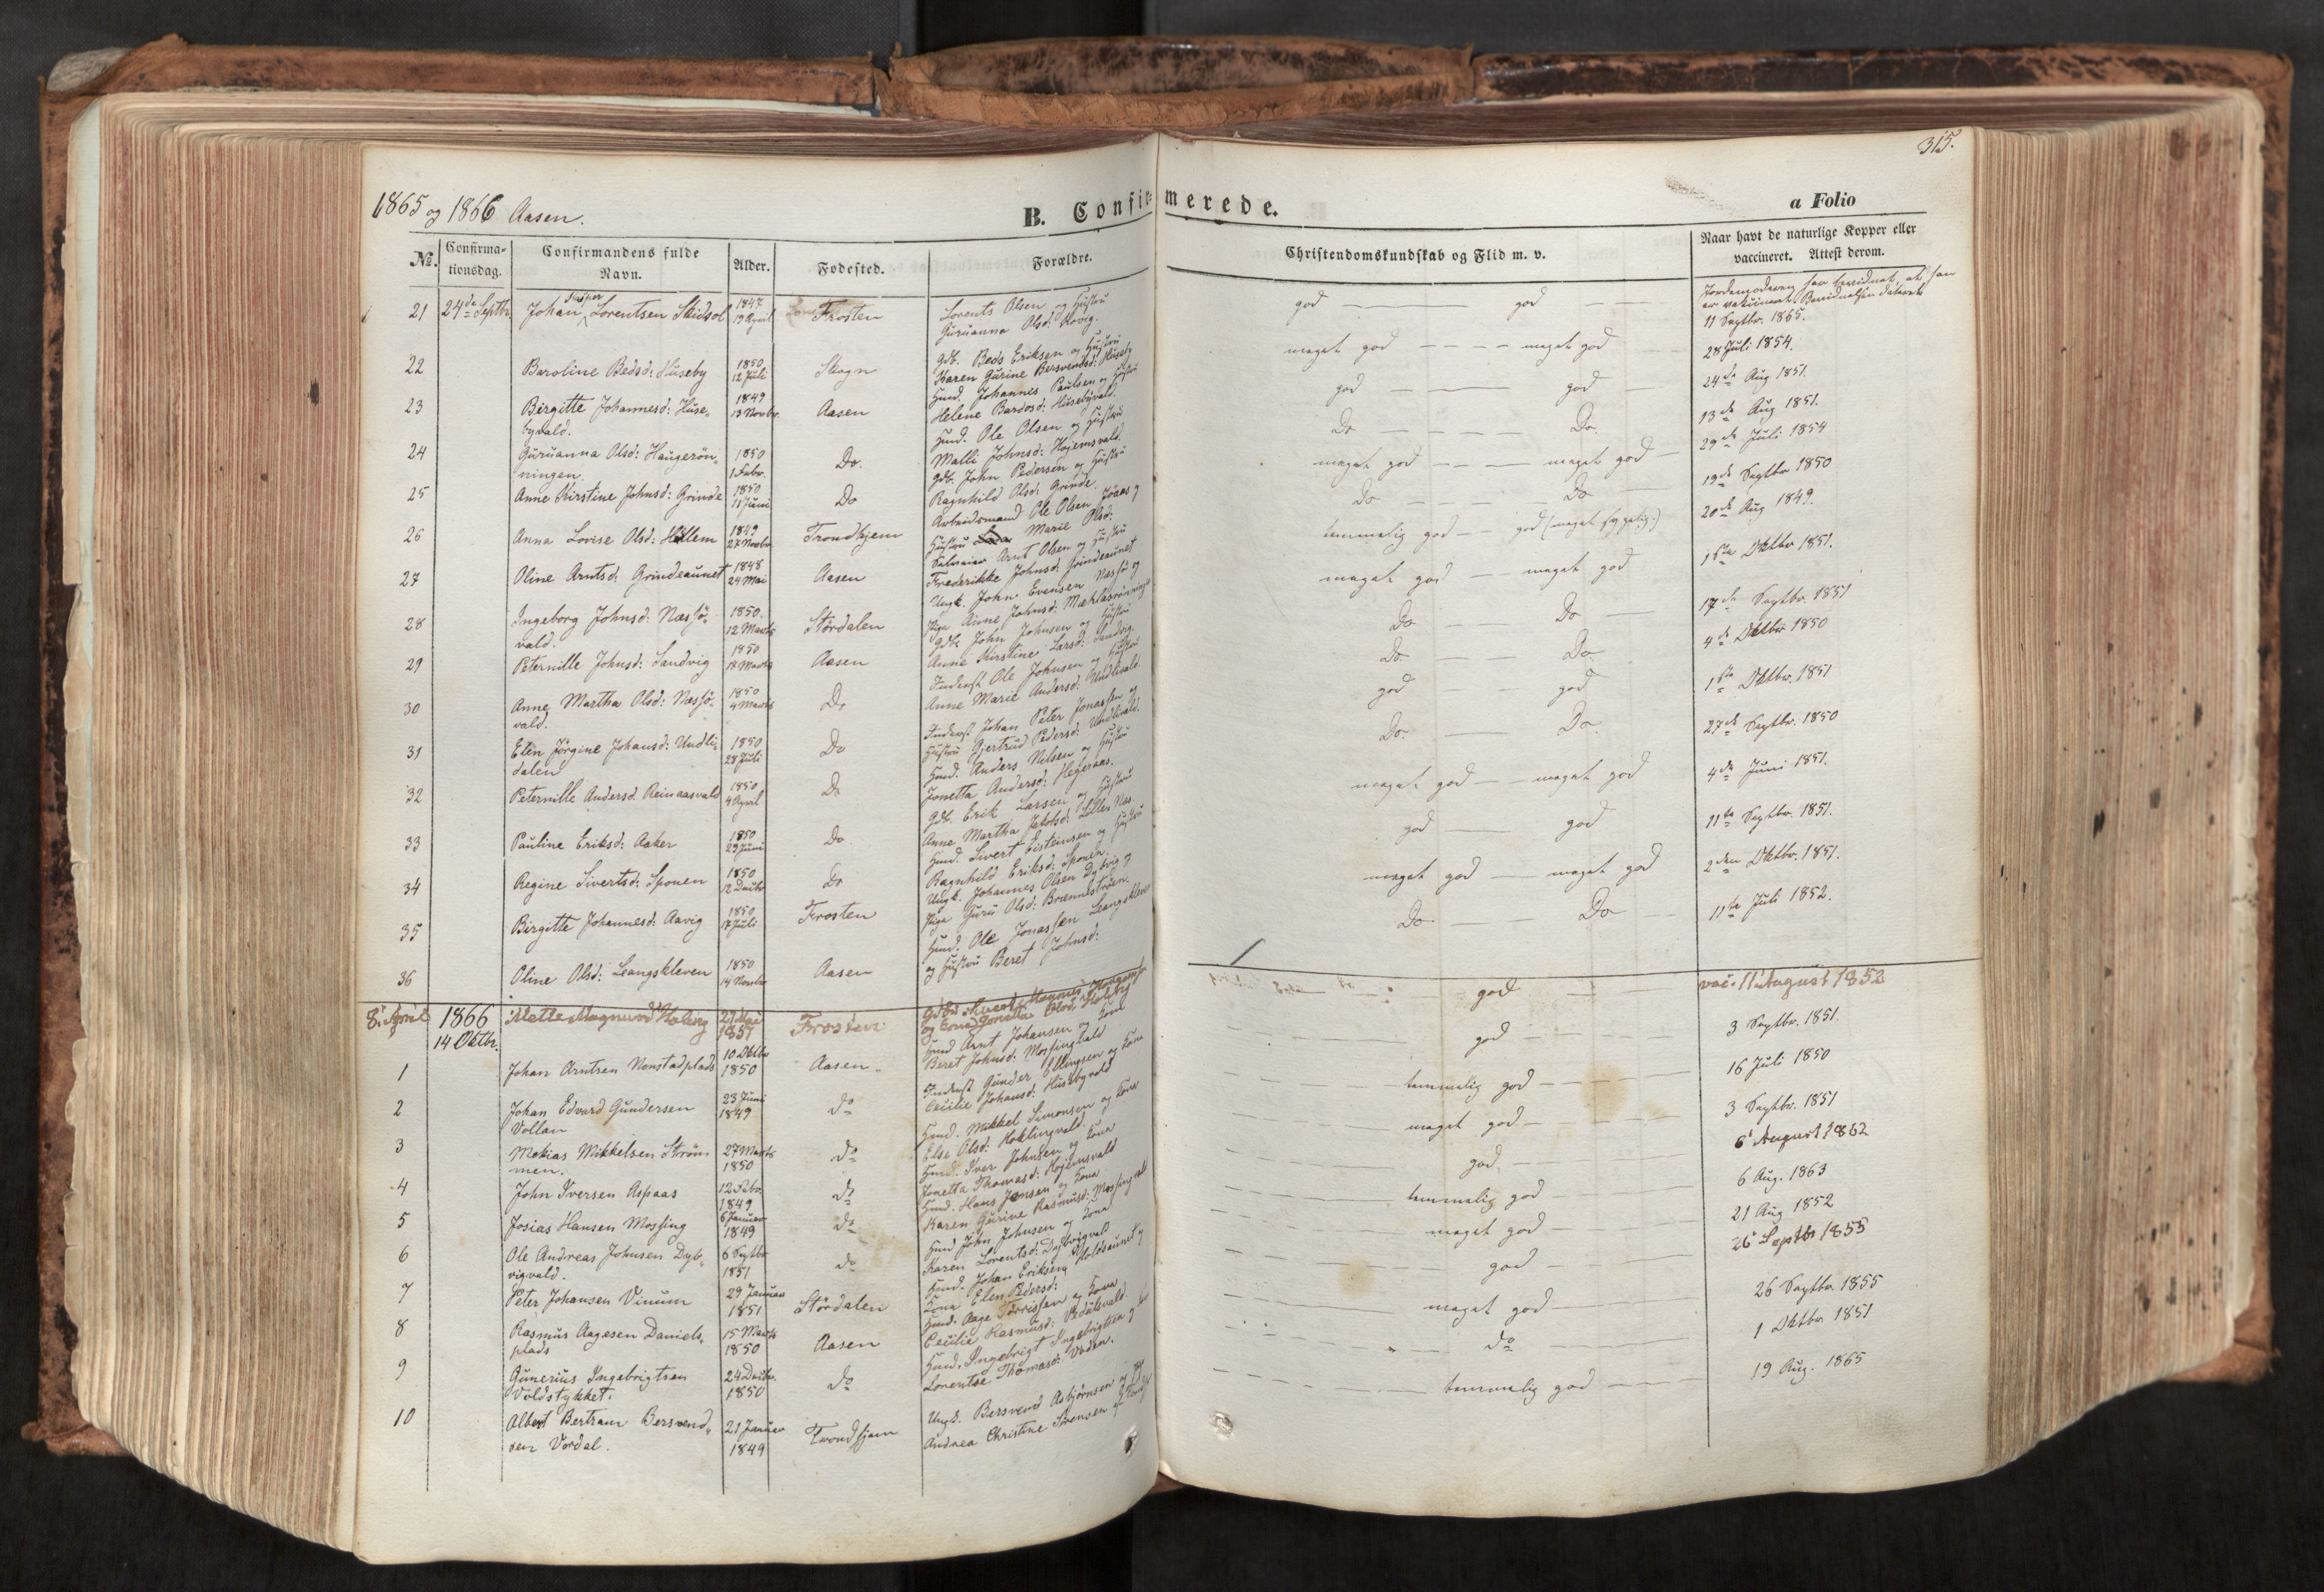 315.
1865 og 1866 Aasen.
B. Confirmerede.
a Folio
No. Confirmationsdag. Confirmandens fulde Navn. Alder. Fødested. Forældre. Christendomskundskab og Flid m. v. Naar havt de naturlige Kopper eller vaccineret. Attest derom.
21 24de Septbr. Johan Kasper Lorentsen Skidsol 1847 19 April Frosten Lorents Olsen og Hustru
Guruanna Olsd: Rovig. god god Jordemoderen har bevidnet, at han
er vakcineret. Bevidnelsen dateret
11 Septbr. 1865.
22 Baroline Bedsd: Huseby 1850 12 Juli Skogn Gdb. Beds Eriksen og Hustru
Karen Gurine Bersvendsd: Huseby maget god maget god 28 Juli 1854.
23 Birgitte Johannesd: Huse-
byvald. 1849 13 Novbr. Aasen Huusd. Johannes Paulsen og Hustru
Helene Bardosd: Husebyvald. god god 24de Aug 1851.
24 Guruanna Olsd: Haugerön-
ningen 1850 1 Febr. Do. Huusd. Ole Olsen og Hustru
Malli Johnsd: Højemsvald. Do Do. 13de Aug 1851.
25 Anne Kirstine Johnsd: Grinde 1850 11 Juni Do Gdb. John Pedersen og Hustru
Ragnhild Olsd: Grinde maget god maget god 29de Juli 1854
26 Anna Lovise Olsd: Hallem 1849 27 Novbr. Trondhjem Arbeidsmand Ole Olsen
Hustru Marie Olsd: Do Do 19de Septbr 1850
27 Oline Arntsd: Grindeaunet 1848 24 Mai Aasen Arnt Olsen og Hustru
Frederikke Johnsd: Grindeaunet temmelig god god (maget sygelig.) 20de Aug 1849.
28 Ingeborg Johnsd: Næssö-
vald. 1850. 12 Marts Stördalen Ungk. John Evensen Næssö og
Pige Anne Johnsd: maget god maget god 1ste Oktbr 1851.
29 Peternille Johnsd: Sandvig 1850 18 Marts Aasen Gdb. John Johnsen og Hustru
Anne Kirstine Larsd: Sandvig. Do Do 17de Septbr. 1851
30 Anne Martha Olsd: Næssö-
vald. 1850 4 Marts Do Inderst Ole Johnsen og Hustru
Anne Marie Andersd: Undlivald. Do. Do 4de Oktbr 1850
31 Elen Jörgine Johansd: Undli-
dalen 1850 28 Juli Do Inderst Johan Peter Jonassen og
Hustru Gjertrud Pedersd: Undlivald. god god 1ste Oktbr. 1851
32 Peternille Andersd: Reinaasvald 1850 4 April Do Huusd. Anders Nilsen og Hustru
Jonetta Andersd: Hegeraas. Do. Do. 27de Septbr. 1850
33 Pauline Eriksd: Aaker 1850 29 Juni Do Gdb. Erik Larsen og Hustru
Anne Martha Jakobsd: Lille Næs. maget god maget god 4de Juni 1851.
34 Regine Sivertsd: Sponen 1850 12 Decbr Do Huusd. Sivert Eisteinsen og Hustru
Ragnhild Eriksd: Sponen. god god 11te Septbr. 1851.
35 Birgitte Johannesd: Aavig 1850 7 Juli Frosten Ungk. Johannes Olsen Dybvig og
Pige Guru Olsd: Brennestrøen. maget god maget god 2den Oktbr. 1851.
36 Oline Olsd: Leangskleven 1850 14 Novbr Aasen Huusd. Ole Jonassen Leangskleven
og Hustru Beret Johnsd: Do Do 11te Juli 1852.
8. April 1866 Mette Magnusd Holling 27 Mai 1851 Frosten
og Kone Jonetta Olsd. god vac. 11 August 1852
14 Oktbr.
1 Johan Arntsen Nonstadplads 10 Oktbr 1850 Aasen. Huusd Arnt Johansen og Kone
Beret Johnsd: Mossingvald god 3 Septbr. 1851.
2 Johan Edvard Gundersen
Vollan 23 Juni 1849 do Inderst Gunder Ellingsen og Kone
Cecilie Johansd: Husebyvald temmelig god 16 Juli 1850
3 Mekias Mikkelsen Ström-
men. 27 Marts 1850 do Huusd. Mikkel Simonsen og Kone
Else Olsd: Hoklingvald. maget god 3 Septbr. 1851
4 John Iversen Aspaas 12 Febr. 1849 do Huusd. Iver Johnsen og Kone
Jonetta Thomasd: Højemsvald god. 6 August 1862
5 Josias Hansen Mossing 6 Januar 1849 do Huusd. Hans Jensen og Kone
Karen Gurine Rasmusd: Mossingvald temmelig god 6 Aug. 1863
6 Ole Andreas Johnsen Dyb-
vigvald. 6 Septbr 1851 do Huusd John Johnsen og Kone
Karen Lorentsd: Dybvigvald maget god 21 Aug 1852
7 Peter Johansen Vinum 29 Januar 1851 Stördalen Huusd. Johan Eriksen Holdsaunet og
Kone Elen Pedersd: god 26 Septbr 1855
8 Rasmus Aagesen Daniels-
plads 15 Marts 1850 Aasen Huusd. Aage Torrissen og Kone
Cecilie Rasmusd: maget god 26 Septbr. 1855
9 Gunerius Ingebrigtsen
Voldstykket. 24 Decbr. 1850 do Huusd. Ingebrigt Ingebrigtsen og
Lorentse Thomasd: Voden. do 1 Oktbr 1851
10 Albert Bertram Bersvend-
sen Vordal. 21 Januar 1849 Trondhjem Ungk. Bersvend Asbjørnsen og
Andrea Christine Sørensen temmelig god 19 Aug. 1865